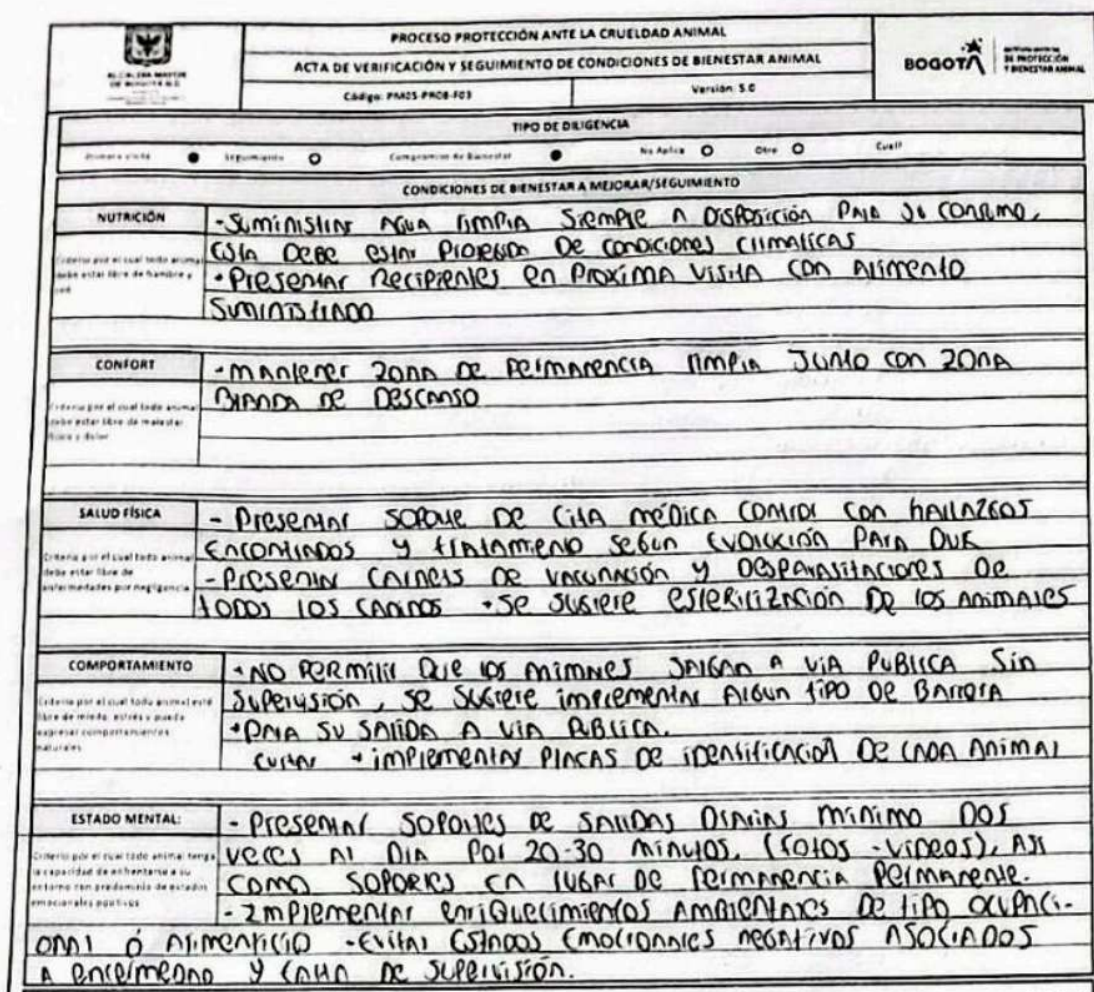 PROCESO PROTECCIÓN ANTE LA CRUELDAD ANIMAL
ACTA DE VERIFICACIÓN Y SEGUIMIENTO DE CONDICIONES DE BIENESTAR ANIMAL
Código: PM05-PR08-F03
Versión: 5.0
ALCALDÍA MAYOR
DE BOGOTÁ D.C.
BOGOTÁ
DE PROTECCIÓN
Y BIENESTAR ANIMAL
TIPO DE DILIGENCIA
Primera visita Seguimiento Compromiso de Bienestar No Aplica Otro Cuál?
CONDICIONES DE BIENESTAR A MEJORAR/SEGUIMIENTO
NUTRICIÓN
Criterio por el cual todo animal
debe estar libre de hambre y
sed
-Suministrar AGUA limpia Siempre A Disposición Para su consumo,
Esta Debe estar Protegida De condiciones climaticas
-Presentar Recipientes en Proxima visita con Alimento
Suministrado
CONFORT
Criterio por el cual todo animal
debe estar libre de malestar
físico y dolor
-mantener zona de Permanencia limpia Junto con zona
Blanda de Descanso
SALUD FÍSICA
Criterio por el cual todo animal
debe estar libre de
enfermedades por negligencia
- Presentar soporte de cita médica control con hallazgos
Encontrados y tratamiento según Evolución Para
-Presentar carnets de vacunación y Desparasitaciones De
todos los caninos -se sugiere esterilización De los Animales
COMPORTAMIENTO
Criterio por el cual todo animal esté
libre de miedo, estrés y pueda
expresar comportamientos
naturales
-NO Permitir Que los Animales Salgan A via Publica Sin
Supervisión, se sugiere implementar Algun tipo De Barrera
Para su salida A via Publica.
Evitar -implementar Placas De identificación De cada Animal
ESTADO MENTAL:
Criterio por el cual todo animal tenga
la capacidad de enfrentarse a su
entorno con predominio de estados
emocionales positivos
- Presentar soportes de salidas Diarias minimo DOS
veces Al Dia Por 20-30 minutos. (fotos - videos), Asi
como soportes en lugar De Permanencia Permanente.
- Implementar enriquecimientos Ambientales De tipo ocupaci-
onal ó Alimenticio -Evitar Estados Emocionales negativos Asociados
A enfermedad y de supervisión.